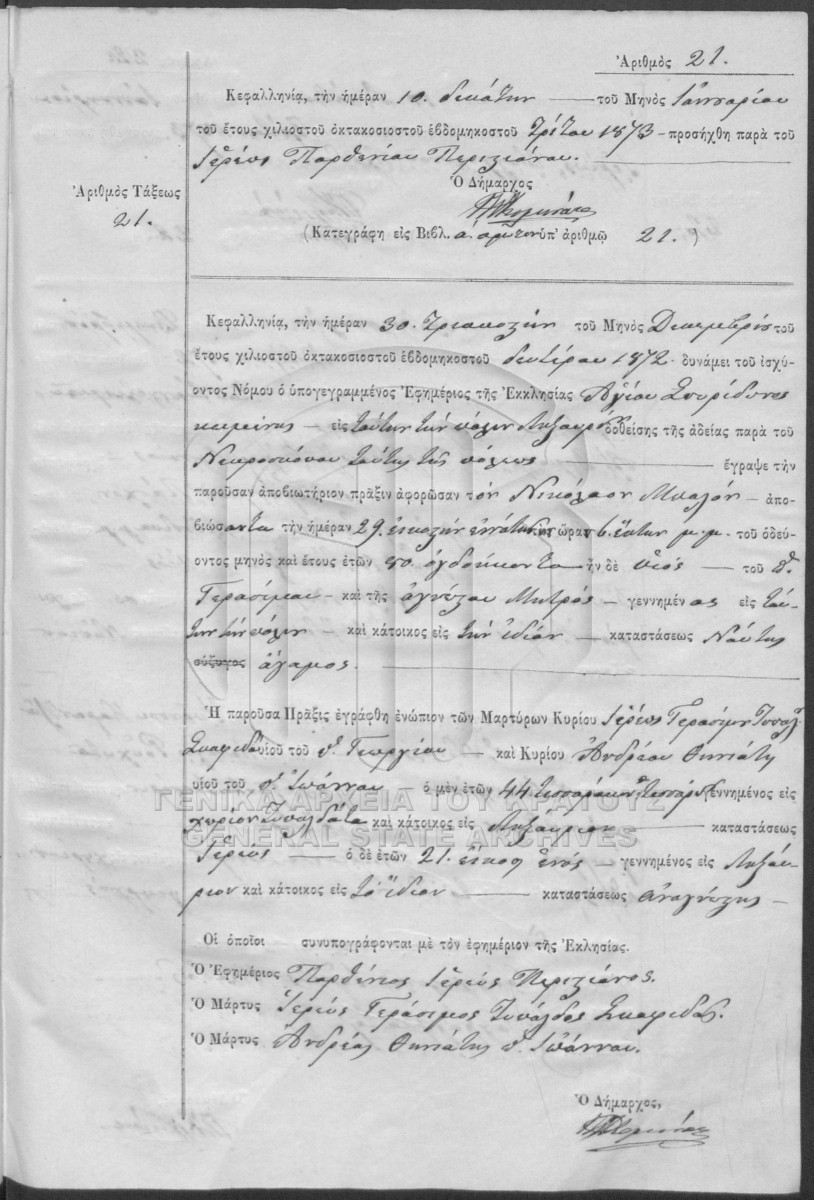 Ἀριθμὸς 21.
Κεφαλληνίᾳ, τὴν ἡμέραν 10. δεκάτην τοῦ Μηνὸς Ἰανουαρίου
τοῦ ἔτους χιλιοστοῦ ὀκτακοσιοστοῦ ἑβδομηκοστοῦ τρίτου 1873 - προσήχθη παρὰ τοῦ
Ἱερέως Παρθενίου
Ὁ Δήμαρχος
Ἀριθμὸς Τάξεως
21.
(Κατεγράφη εἰς Βιβλ. α. πρῶτον ὑπ' ἀριθμῷ 21.)
Κεφαλληνίᾳ, τὴν ἡμέραν 30. τριακοστὴν τοῦ Μηνὸς Δεκεμβρίου τοῦ
ἔτους χιλιοστοῦ ὀκτακοσιοστοῦ ἑβδομηκοστοῦ δευτέρου 1872. δυνάμει τοῦ ἰσχύ-
οντος Νόμου ὁ ὑπογεγραμμένος Ἐφημέριος τῆς Ἐκκλησίας Ἁγίου Σπυρίδωνος
κειμένης - εἰς ταύτην τὴν πόλιν Ληξουρίου δοθείσης τῆς ἀδείας παρὰ τοῦ
Νεκροσκόπου ταύτης τῆς πόλεως ἔγραψε τὴν
παροῦσαν ἀποβιωτήριον πρᾶξιν ἀφορῶσαν τὸν Νικόλαον - ἀπο-
βιώσαντα τὴν ἡμέραν 29. εἰκοστὴν ἐννάτην τὴν ὥραν 6. ἕκτην μ.μ. τοῦ ὁδεύ-
οντος μηνὸς καὶ ἔτους ἐτῶν 80. ὀγδοήκοντα ἦν δὲ υἱὸς - τοῦ π.
Γερασίμου - καὶ τῆς ἀγνώστου Μητρός - γεννημένος εἰς ταύ-
την τὴν πόλιν - καὶ κάτοικος εἰς τὴν ἰδίαν - καταστάσεως Ναύτης
σύζυγος ἄγαμος.
Ἡ παροῦσα Πρᾶξις ἐγράφθη ἐνώπιον τῶν Μαρτύρων Κυρίου Ἱερέως Γερασίμου Τυπάλδ.
Σκαφιδᾶ υἱοῦ τοῦ π. Γεωργίου - καὶ Κυρίου Ἀνδρέου Θηνιάτη
υἱοῦ τοῦ π. Ἰωάννου ὁ μὲν ἐτῶν 44 τεσσαράκοντα τεσσάρων γεννημένος εἰς
χωρίον Τυπαλδᾶτα καὶ κάτοικος εἰς Ληξούριον καταστάσεως
Ἱερεὺς ὁ δὲ ἐτῶν 21. εἴκοσι ἑνός - γεννημένος εἰς Ληξού-
ριον καὶ κάτοικος εἰς τὸ ἴδιον καταστάσεως ἀναγνώστης -
Οἱ ὁποῖοι συνυπογράφονται μὲ τὸν ἐφημέριον τῆς Ἐκλησίας.
Ὁ Ἐφημέριος Παρθένιος Ἱερεὺς
Ὁ Μάρτυς Ἱερεὺς Γεράσιμος Τυπάλδος Σκαφιδᾶς.
Ὁ Μάρτυς Ἀνδρέας Θηνιάτης π. Ἰωάννου.
Ὁ Δήμαρχος,
ΓΕΝΙΚΑ ΑΡΧΕΙΑ ΤΟΥ ΚΡΑΤΟΥΣ
GENERAL STATE ARCHIVES